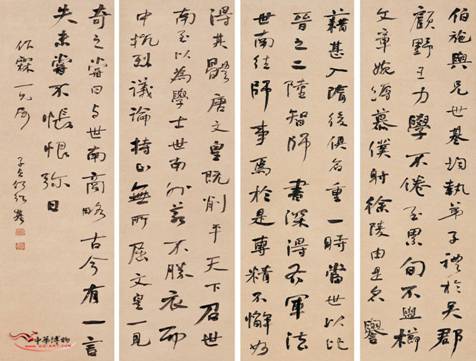 伯施與兄世基均執弟子禮於吳郡
顧野王力學不倦至累旬不盥櫛
文章婉縟慕僕射徐陵由是名譽
藉甚入隋後俱名重一時當世以比
晉之二陸智師書深得右軍法
世南往師事焉於是專精不懈妙
得其體唐文皇既削平天下召世
南至以為學士世南外若不勝衣而
中抗烈議論持正無所屈文皇一見
奇之嘗曰與世南商略古今有一言
失未嘗不悵恨彌日
作霖一兄屬
子貞何紹基
中華博物